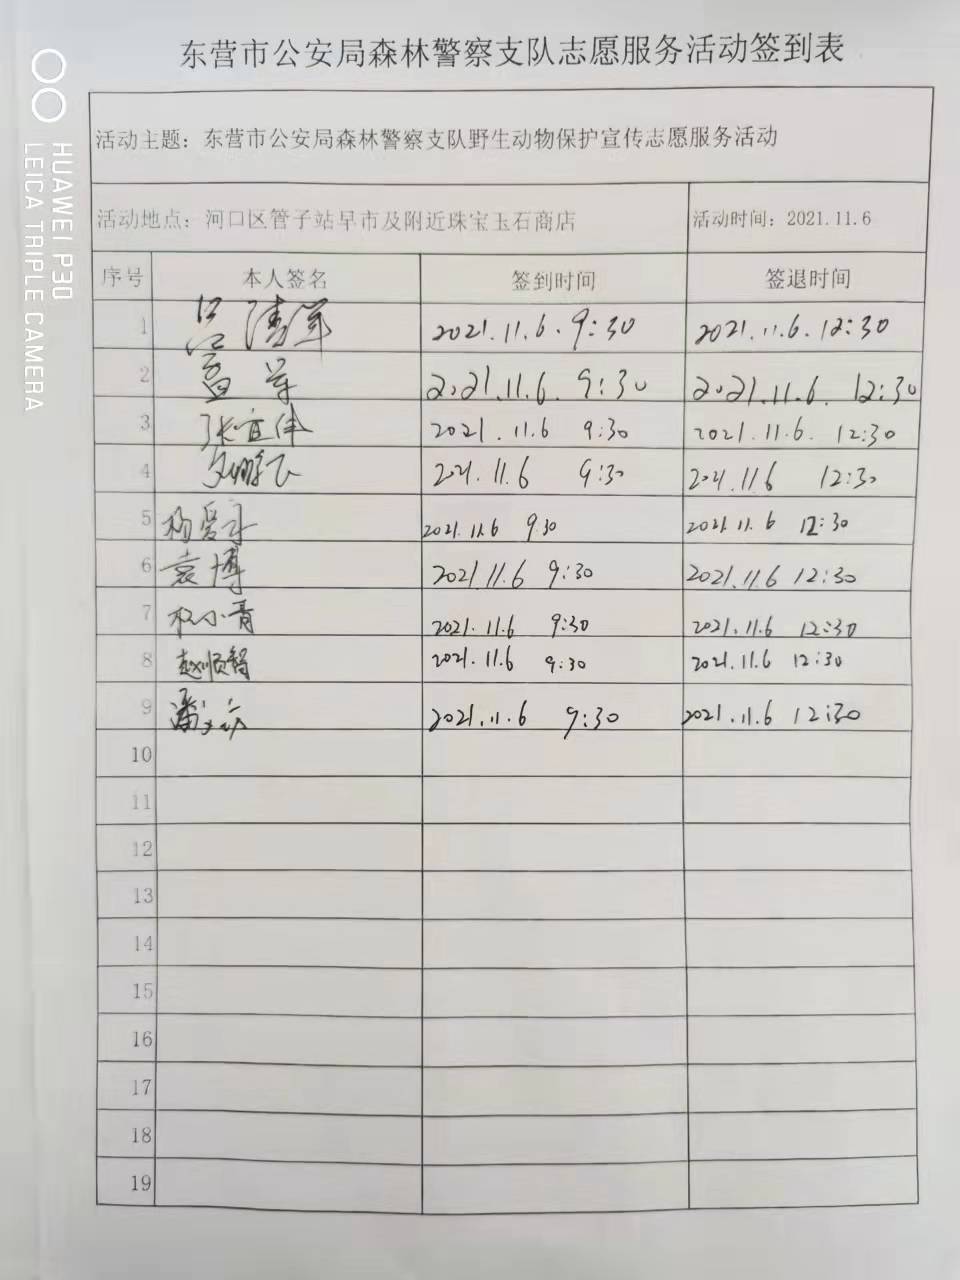 东营市公安局森林警察支队志愿服务活动签到表
活动主题：东营市公安局森林警察支队野生动物保护宣传志愿服务活动
活动地点：河口区管子站早市及附近珠宝玉石商店 活动时间：2021.11.6
序号 本人签名 签到时间 签退时间
1 2021.11.6.9:30 2021.11.6.12:30
2 2021.11.6. 9:30 2021.11.6. 12:30
3 张宜伟 2021.11.6 9:30 2021.11.6. 12:30
4 2021.11.6 9:30 2021.11.6 12:30
5 2021.11.6 9:30 2021.11.6 12:30
6 袁博 2021.11.6 9:30 2021.11.6 12:30
7 2021.11.6 9:30 2021.11.6 12:30
8 赵顺智 2021.11.6 9:30 2021.11.6 12:30
9 2021.11.6 9:30 2021.11.6 12:30
10
11
12
13
14
15
16
17
18
19
HUAWEI P30
LEICA TRIPLE CAMERA